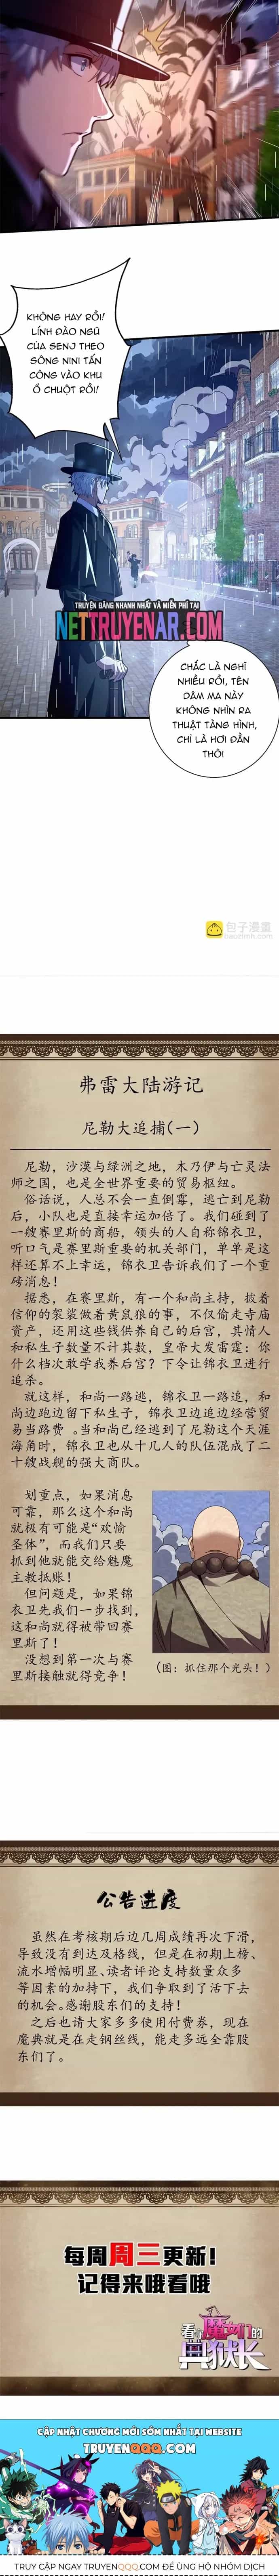 KHÔNG HAY RỒI!
LÍNH ĐÀO NGŨ
CỦA SENJ THEO
SÔNG NINI TẤN
CÔNG VÀO KHU
Ổ CHUỘT RỒI!
TRUYỆN ĐĂNG NHANH NHẤT VÀ MIỄN PHÍ TẠI
NETTRUYENAR.COM
CHẮC LÀ NGHĨ
NHIỀU RỒI, TÊN
DÂM MA NÀY
KHÔNG NHÌN RA
THUẬT TÀNG HÌNH,
CHỈ LÀ HƠI ĐẦN
THÔI
包子漫畫
baozimh.com
弗雷大陆游记
尼勒大追捕(一)
尼勒,沙漠与绿洲之地,木乃伊与亡灵法
师之国,也是全世界重要的贸易枢纽。
俗话说,人总不会一直倒霉,逃亡到尼勒
后,小队也是直接幸运加倍了。我们碰到了
一艘赛里斯的商船,领头的人自称锦衣卫,
听口气是赛里斯重要的机关部门,单单是这
样还算不上幸运,锦衣卫告诉我们了一个重
磅消息!
据悉,在赛里斯,有一个和尚主持,披着
信仰的袈裟做着黄鼠狼的事,不仅偷走寺庙
资产,还用这些钱供养自己的后宫,其情人
和私生子数量不计其数,皇帝大发雷霆:你
什么档次敢学我养后宫?下令让锦衣卫进行
追杀。
就这样,和尚一路逃,锦衣卫一路追,和
尚边跑边留下私生子,锦衣卫边追边经营贸
易当路费 。当和尚已经逃到了尼勒这个天涯
海角时,锦衣卫也从十几人的队伍混成了二
十艘战舰的强大商队。
划重点,如果消息
可靠,那么这个和尚
就极有可能是“欢愉
圣体”,而我们只要
抓到他就能交给魅魔
主教抵账!
但问题是,如果锦
衣卫先我们一步找到,
这和尚就得被带回赛
里斯了!
没想到第一次与赛
里斯接触就得竞争!
(图:抓住那个光头!)
公告进度
虽然在考核期后边几周成绩再次下滑,
导致没有到达及格线,但是在初期上榜、
流水增幅明显、读者评论支持数量众多
等因素的加持下,我们争取到了活下去
的机会。感谢股东们的支持!
之后也请大家多多使用付费券,现在
魔典就是在走钢丝线,能走多远全靠股
东们了。
每周周三更新!
记得来哦看哦
看守魔女们的
典狱长
CẬP NHẬT CHƯƠNG MỚI SỚM NHẤT TẠI WEBSITE
TRUYENQQQ.COM
TRUY CẬP NGAY TRUYENQQQ.COM ĐỂ ỦNG HỘ NHÓM DỊCH